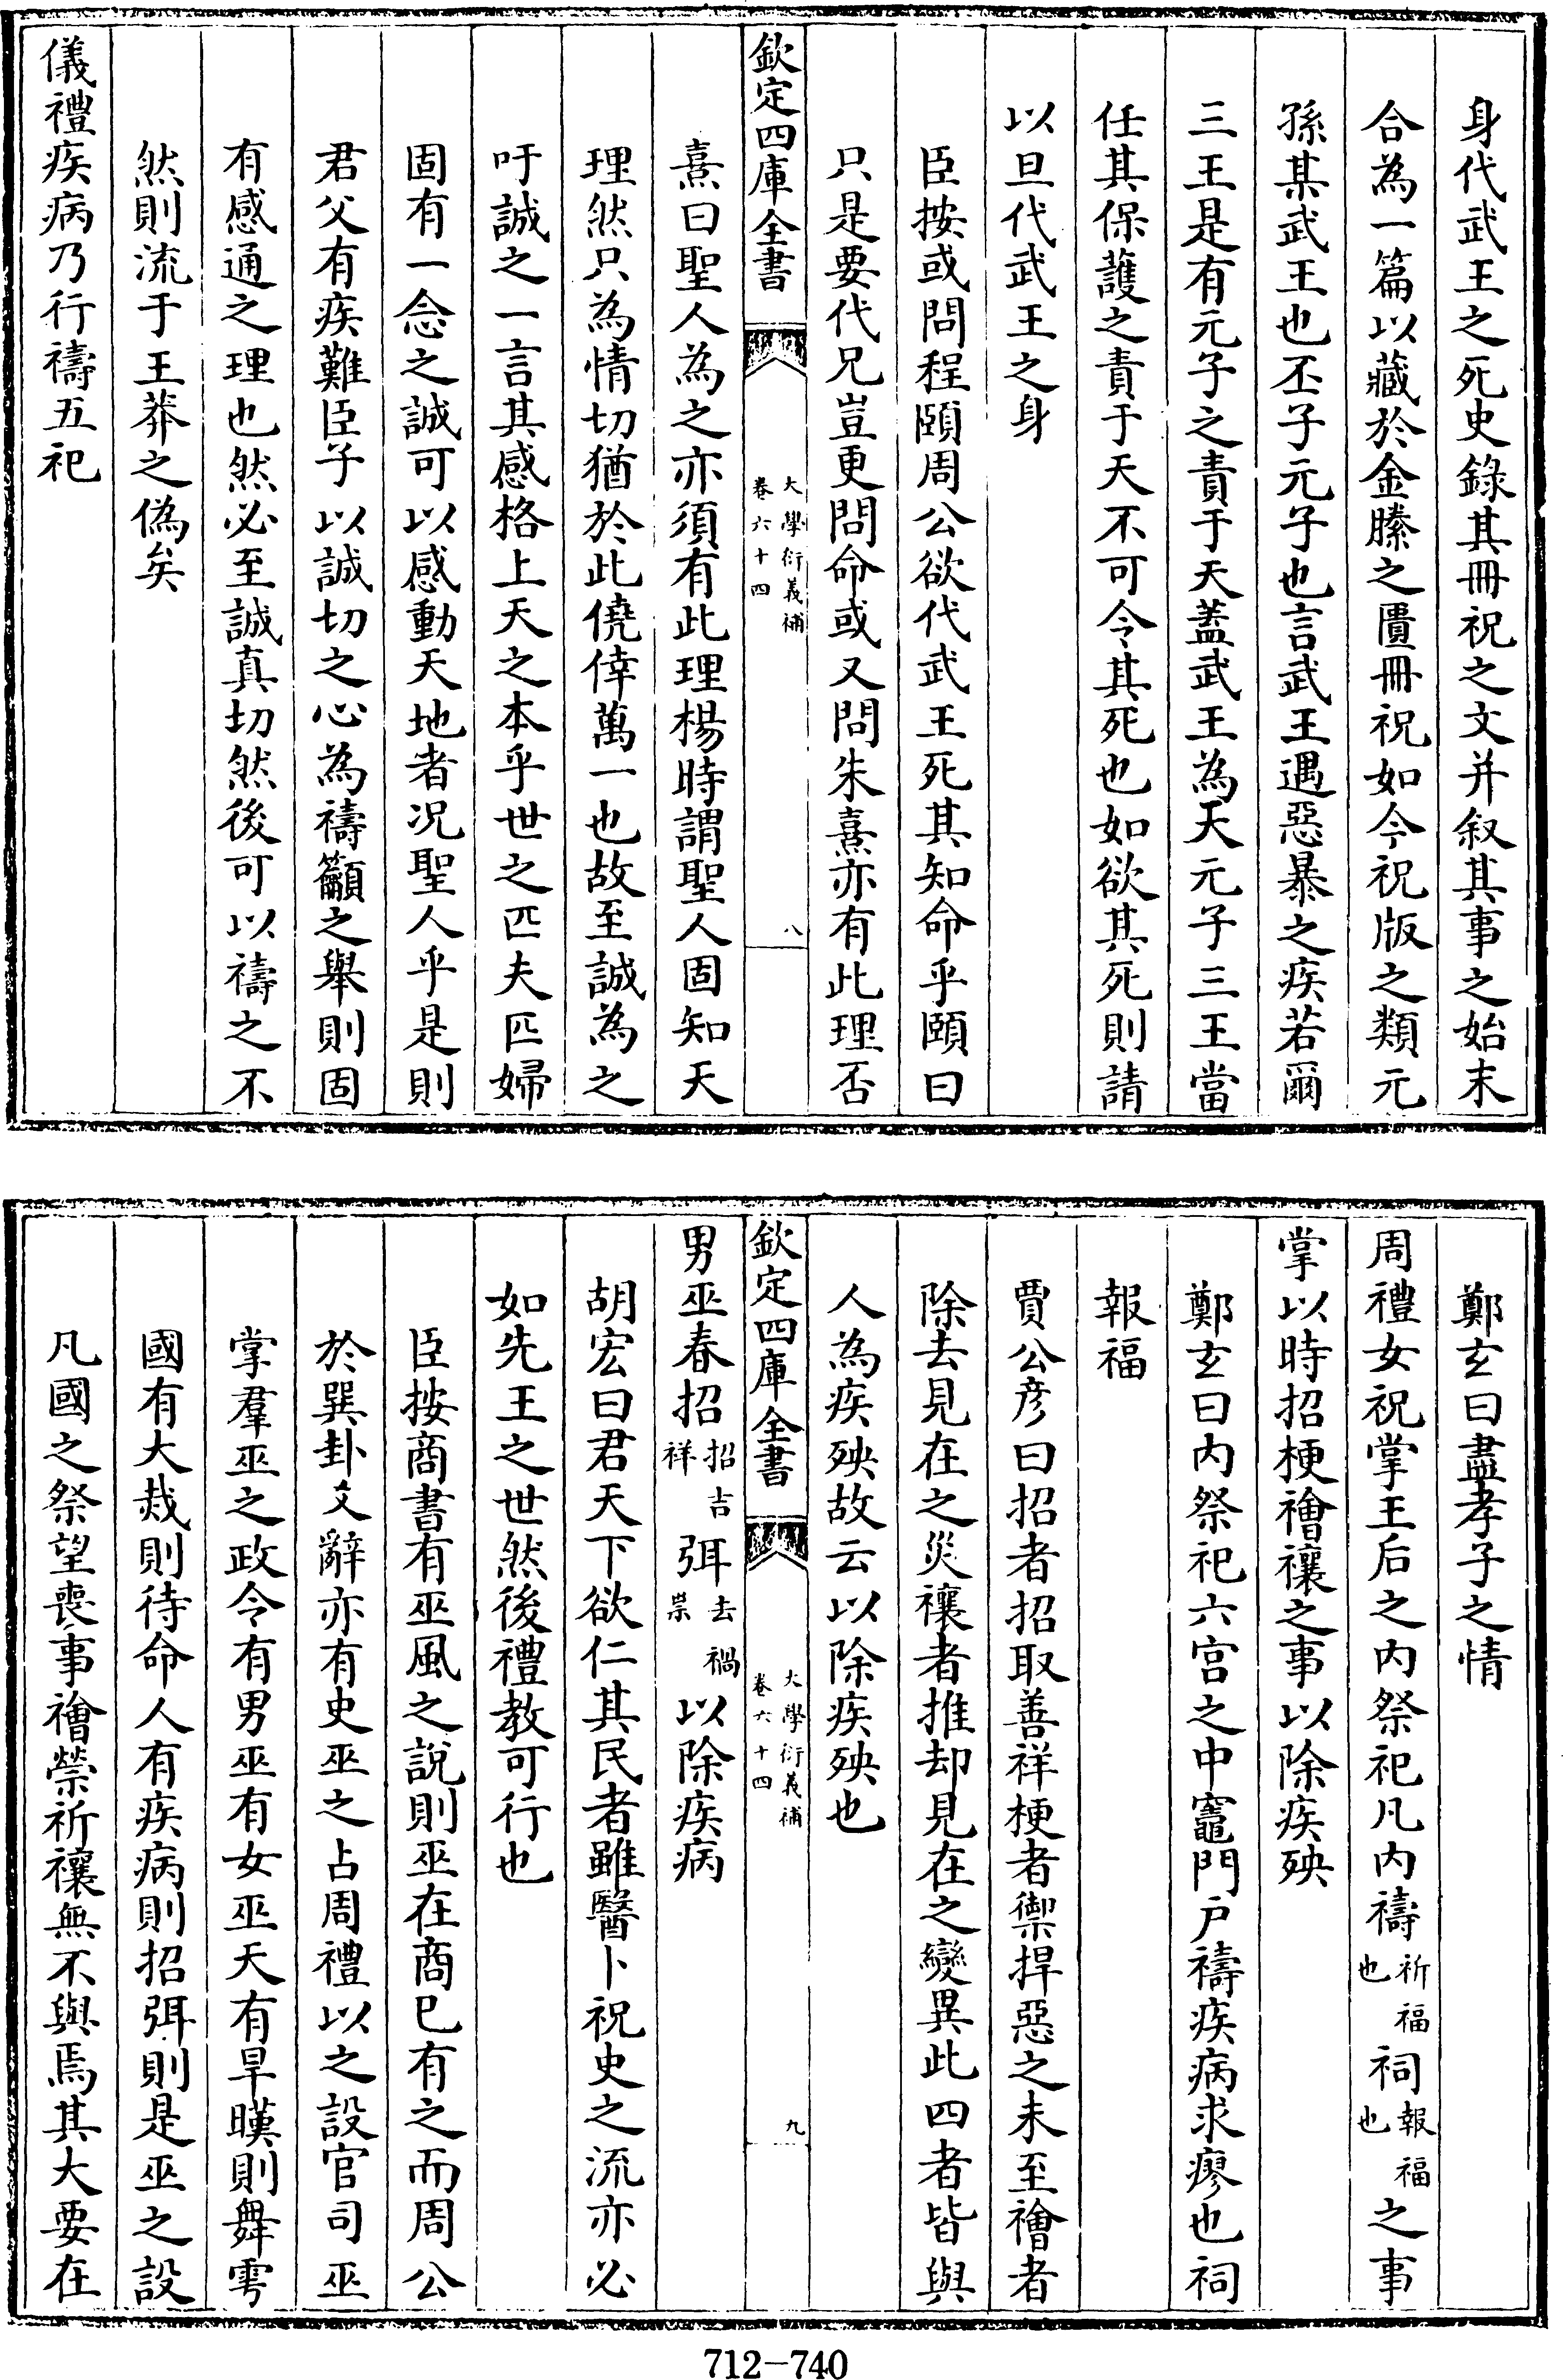 身代武王之死史錄其冊祝之文并叙其事之始末
合為一篇以藏於金縢之匱冊祝如今祝版之類元
孫某武王也丕子元子也言武王遇惡暴之疾若爾
三王是有元子之責于天蓋武王為天元子三王當
任其保護之責于天不可令其死也如欲其死則請
以旦代武王之身
臣按或問程頤周公欲代武王死其知命乎頤曰
只是要代兄豈更問命或又問朱熹亦有此理否
欽定四庫全書
大學衍義補
卷六十四
八
熹曰聖人為之亦須有此理楊時謂聖人固知天
理然只為情切猶於此僥倖萬一也故至誠為之
吁誠之一言其感格上天之本乎世之匹夫匹婦
固有一念之誠可以感動天地者况聖人乎是則
君父有疾難臣子以誠切之心為禱籲之舉則固
有感通之理也然必至誠真切然後可以禱之不
然則流于王莽之偽矣
儀禮疾病乃行禱五祀
鄭玄曰盡孝子之情
周禮女祝掌王后之內祭祀凡內禱祈福也祠報福也之事
掌以時招梗禬禳之事以除疾殃
鄭玄曰內祭祀六宫之中竈門户禱疾病求瘳也祠
報福
賈公彦曰招者招取善祥梗者禦捍惡之未至禬者
除去見在之災禳者推却見在之變異此四者皆與
人為疾殃故云以除疾殃也
欽定四庫全書
大學衍義補
卷六十四
九
男巫春招招吉祥弭去禍祟以除疾病
胡宏曰君天下欲仁其民者雖醫卜祝史之流亦必
如先王之世然後禮教可行也
臣按商書有巫風之說則巫在商已有之而周公
於巽卦爻辭亦有史巫之占周禮以之設官司巫
掌羣巫之政令有男巫有女巫天有旱暵則舞雩
國有大烖則待命人有疾病則招弭則是巫之設
凡國之祭望喪事禬禜祈禳無不與焉其大要在
712-740